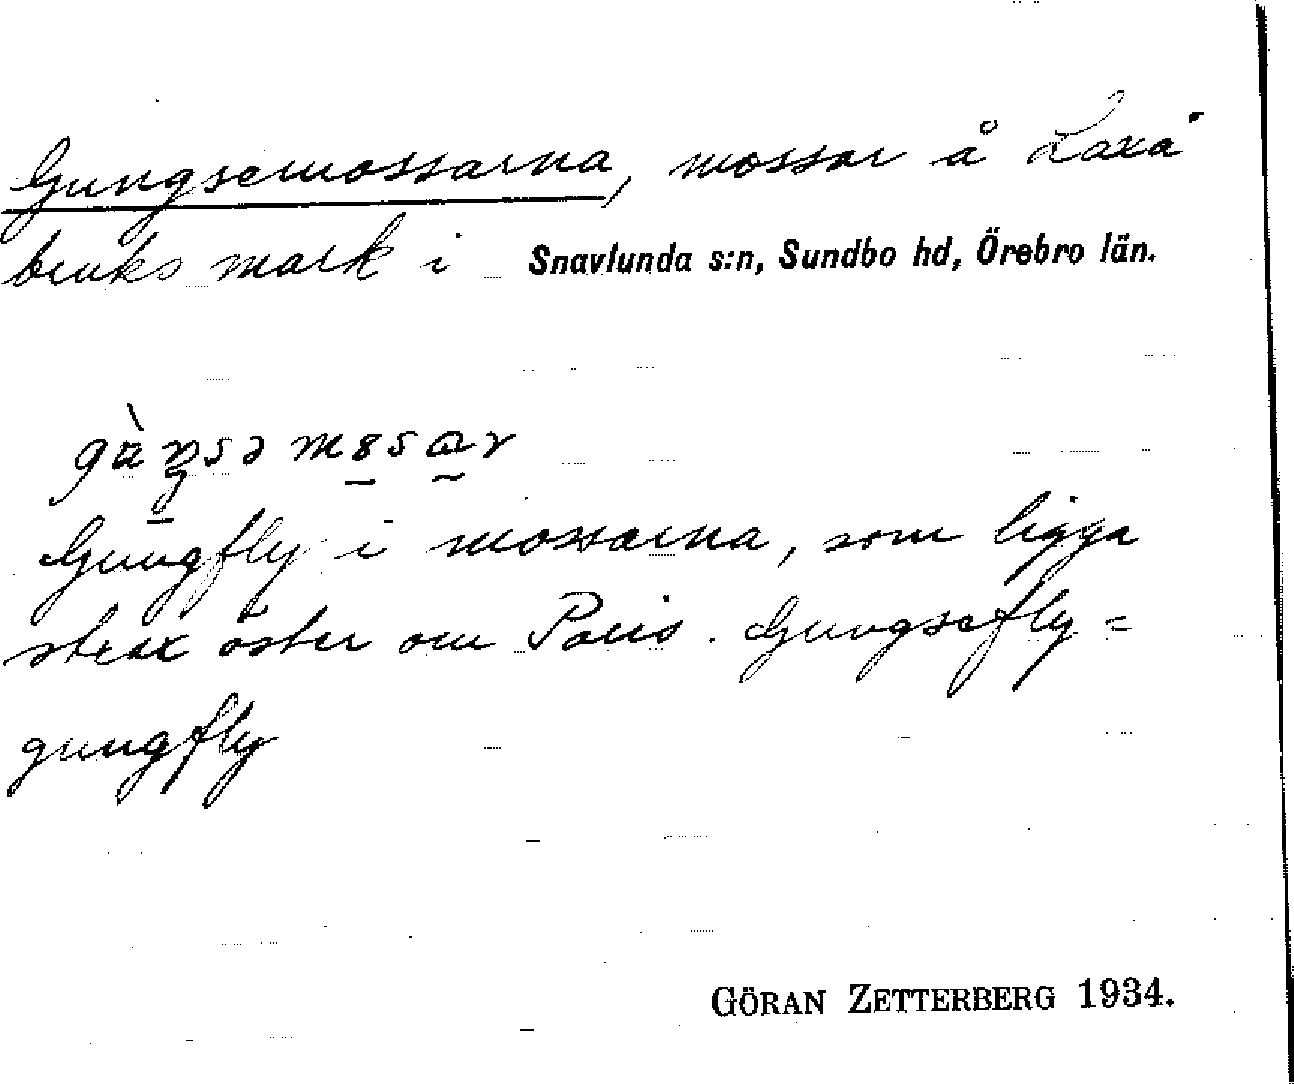 Gungsemossarna, mossar å Laxå
bruks mark i Snavlunda s:n, Sundbo hd, Örebro län.
Gungfly i mossarna, som ligga
strax öster om Paris. Gungsefly =
gungfly
GÖRAN ZETTERBERG 1934.